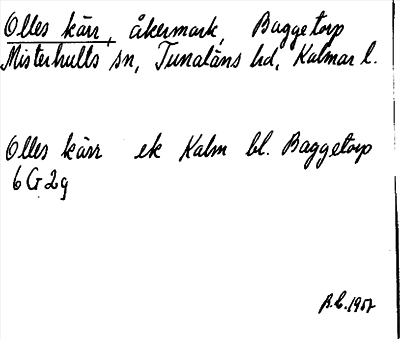 Olles kärr, åkermark, Baggetorp
Misterhults sn, Tunaläns hd, Kalmar l.
Olles kärr ek Kalm bl. Baggetorp
6G2g
1957